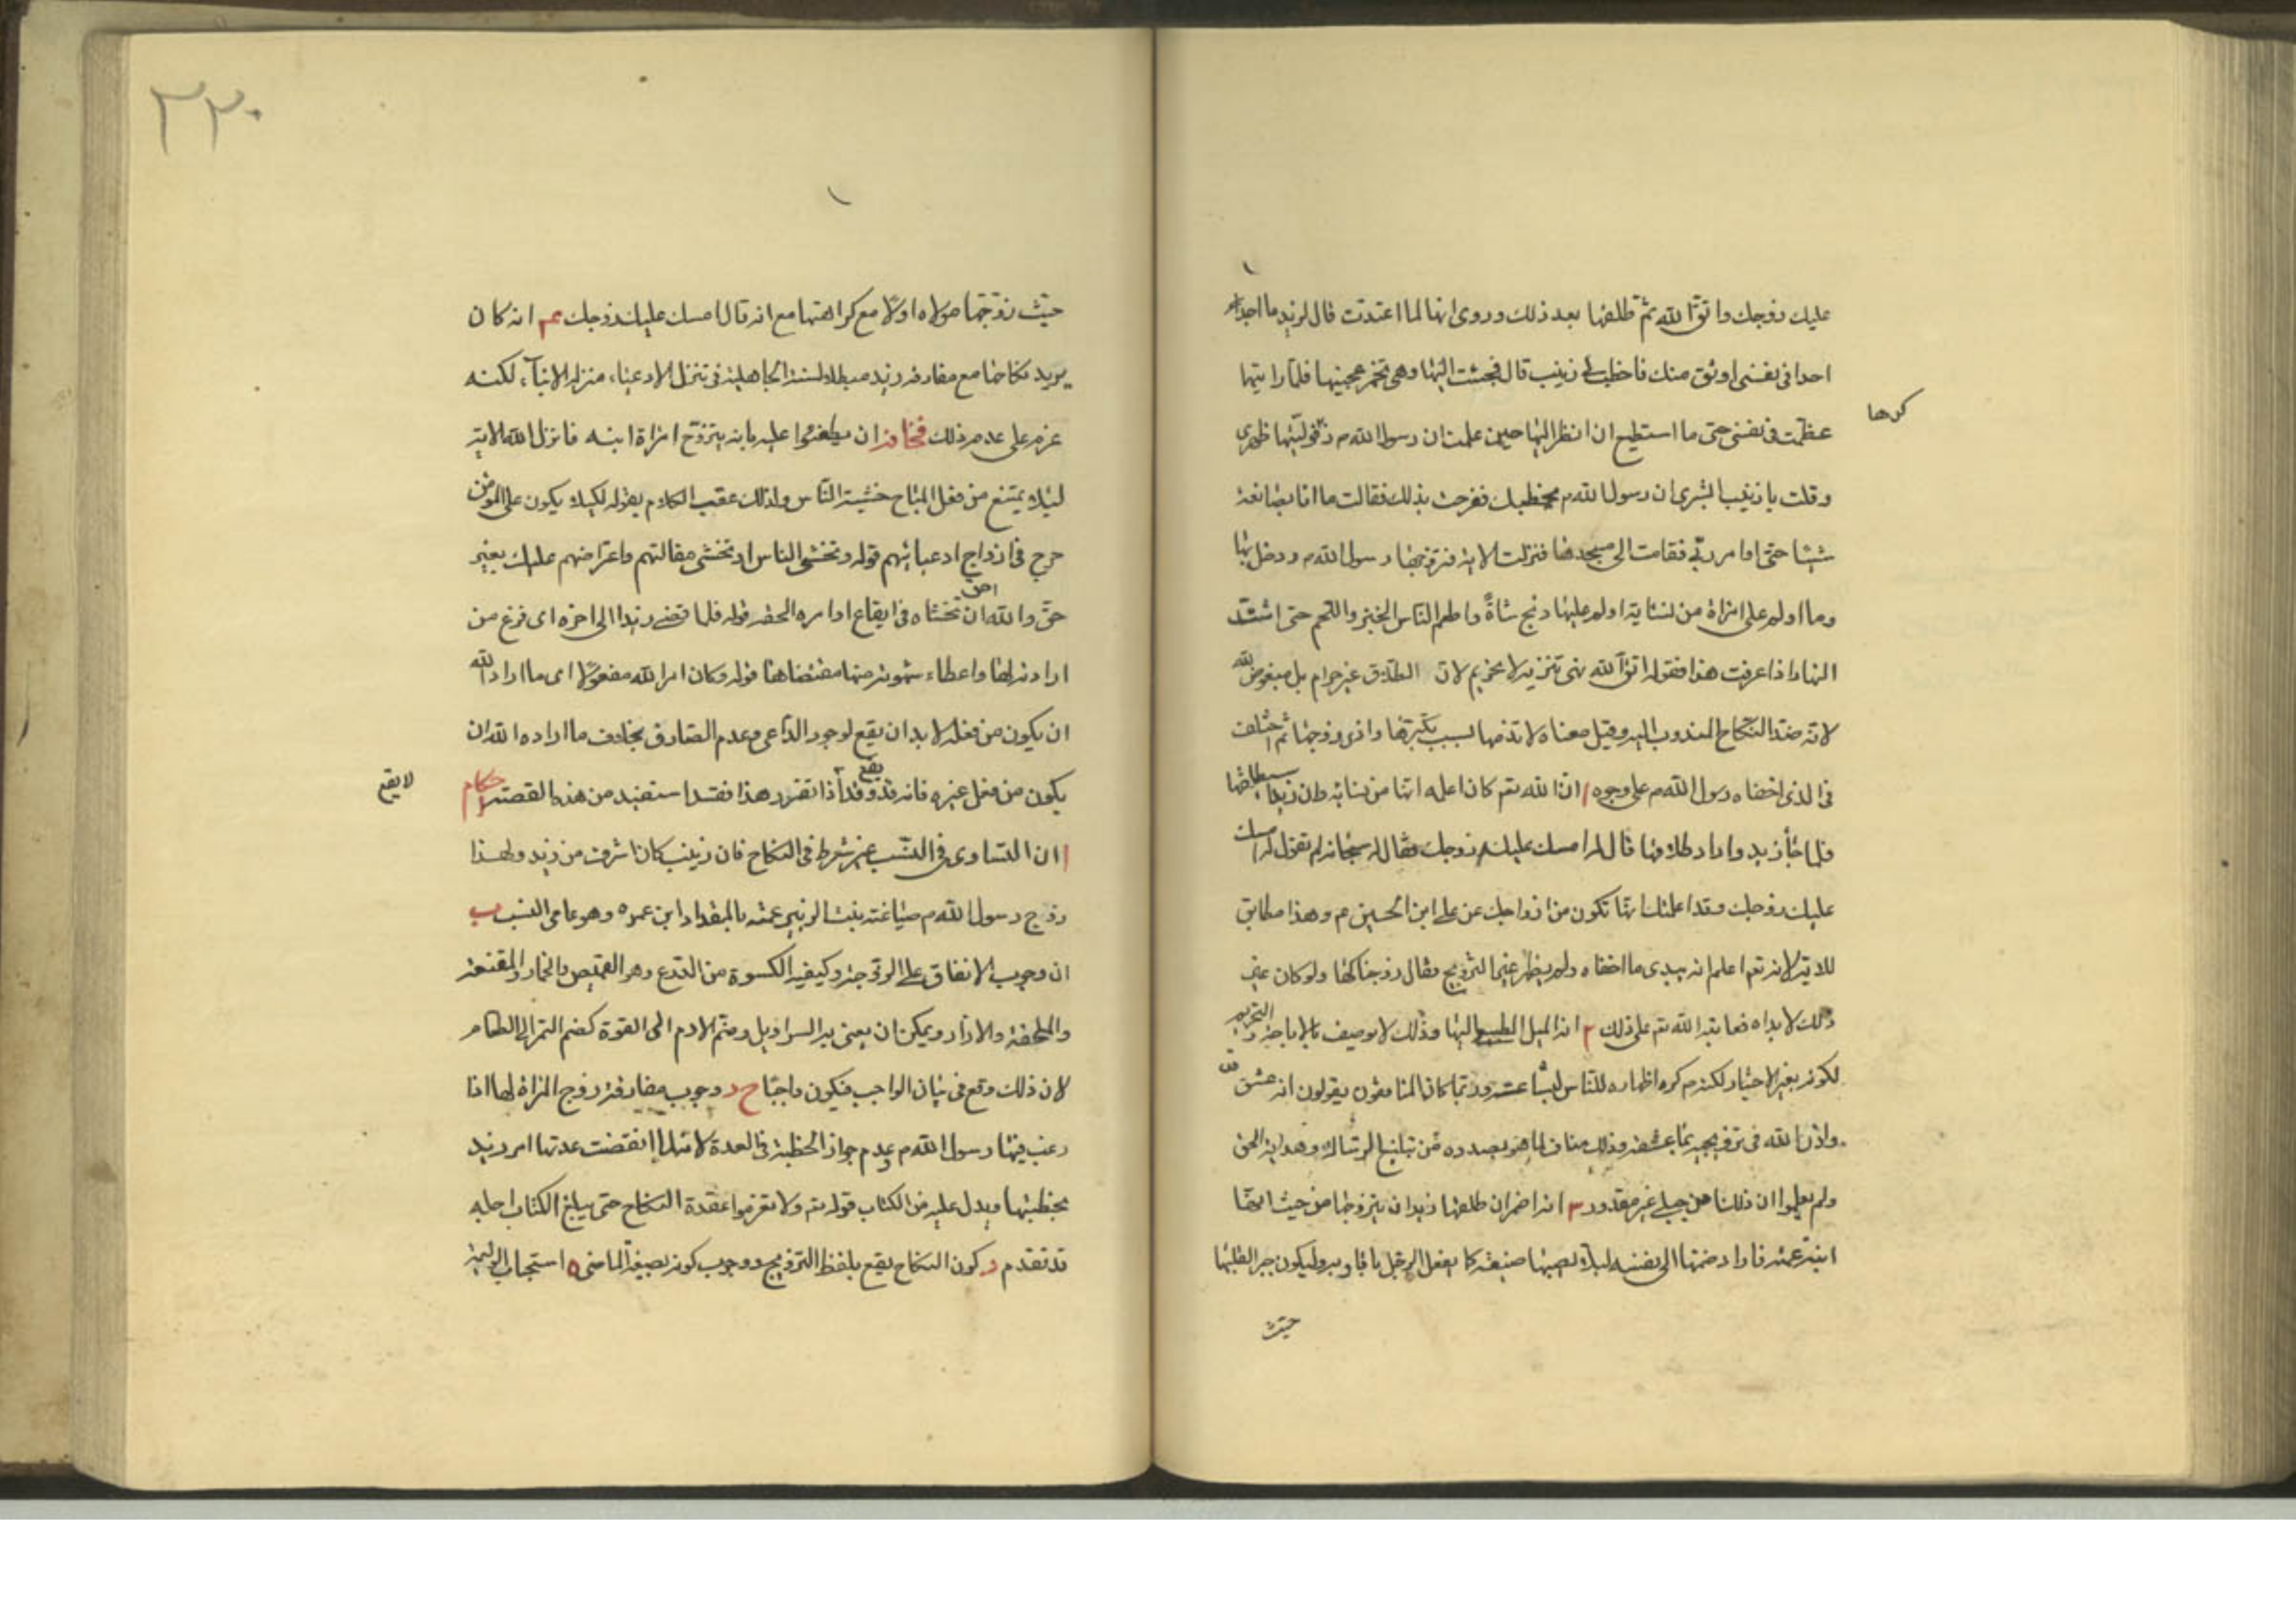 عليك زوجك واتق الله ثم طلقها بعد ذلك وروى انها لما اعتدت قال لزيد ما اجد
احدا فى نفسى اوثق منك فاخطب لى زينب قال فجئت اليها وهى تخمر عجينها فلما رايتها
عظمت فى نفسى حتى ما استطيع ان انظر اليها حين علمت ان رسول الله م ذكرها فوليتها ظهرى
وقلت يا زينب ابشرى ان رسول الله م يخطبك ففرحت بذلك فقالت ما انا بصانعة
شيئا حتى اوامر ربى فقامت الى مسجدها فنزلت الاية فتزوجها رسول الله م ودخل بها
وما اولم على امراة من نسائه ما اولم عليها ذبح شاة واطعم الناس الخبز واللحم حتى اشتد
النهار اذا عرفت هذا فقوله اتق الله نهى تنزيه لا تحريم لان الطلاق غير حرام بل مبغوض لله
لانه ضد النكاح المندوب اليه وقيل معناه لا تذمها بسبب تكبرها واذى زوجها ثم اختلف
فى الذى اخفاه رسول الله م على وجوه ا ان الله تعم كان اعلمه انها من نسائه وان زيدا سيطلقها
فلما جاء زيد واراد طلاقها قال له امسك عليك زوجك فقال له سبحانه لم تقول له امسك
عليك زوجك وقد اعلمتك انها تكون من ازواجك عن على ابن الحسين م وهذا مطابق
للاية لانه تعم اعلم انه يبدى ما اخفاه ولم يظهر غير التزويج فقال زوجناكها ولو كان غير
ذلك لابداه فعاتبه الله تم على ذلك ٢ انه الميل الطبيع اليها وذلك لا يوصف بالاباحة والتحريم
لكونه بغير الاختيار لكنه م كره اظهاره للناس لبشاعته وربما كان المنافقون يقولون انه عشق
واذن الله فى تزويجه بما عشقه وذلك مناف لما هو بصدده من تبليغ الرسالة وهداية الحق
ولم يعلموا ان ذلك امر جبلى غير مقدور ٣ انه اضمر ان طلقها زيد ان يتزوجها من حيث انها
ابنة عمته فاراد ضمها الى نفسه لئلا يصيبها ضيعة كما يفعل الرجل باقاربه وليكون جبرا لقلبها
حيث
كرها
٣٣٠
حيث زوجها مولاه اولا مع كراهتها مع انه قال امسك عليك زوجك عم انه كان
يريد نكاحها مع مفارقة زيد مبطلا لسنة الجاهلية فى تنزل الادعياء منزلة الابناء لكنه
عزم على عدم ذلك مخافة ان يطعنوا عليه بانه يتزوج امراة ابنه فانزل الله الاية
لئلا يمتنع من فعل المباح خشية الناس ولذلك عقب الكلام بقوله لكيلا يكون على المؤمنين
حرج فى ازواج ادعيائهم قوله وتخشى الناس اى تخشى مقالتهم واعتراضهم عليك بغير
حق والله احق ان تخشاه فى ايقاع اوامره الحقه قوله فلما قضى زيد الى اخره اى فرغ من
ارادته لها واعطاء شهوته منها مقتضاها قوله وكان امر الله مفعولا اى ما اراد الله
ان يكون من فعله لا بد ان يقع لوجود الداعى وعدم الصارف بخلاف ما اراده الله ان
يكون من فعل غيره فانه قد يقع وقد اذا تقرر هذا فقد استفيد من هذه القصة احكام
لا يقع
ا ان التساوى فى النسب غير شرط فى النكاح فان زينب كان اشرف من زيد ولهذا
زوج رسول الله م ضباعة بنت الزبير عمه بالمقداد ابن عمره وهو عامى النسب ب
ان وجوب الانفاق على الزوجة وكيفية الكسوة من الدرع وهو القميص والخمار والمقنعة
والملحفة والازار ويمكن ان يعنى به السراويل وضم الادم الى القوة كضم التمر الى الطعام
لان ذلك وقع فى بيان الواجب فيكون واجبا ج وجوب مفارقة زوج المراة لها اذا
رغب فيها رسول الله م وعدم جواز الخطبة فى العدة لانه لما انقضت عدتها امر زيد
بخطبتها ويدل عليه من الكتاب قوله تم ولا تعزموا عقدة النكاح حتى يبلغ الكتاب اجله
قد تقدم د كون النكاح يقع بلفظ التزويج ووجوب كونه بصيغة الماضى ه استحباب الوليمة